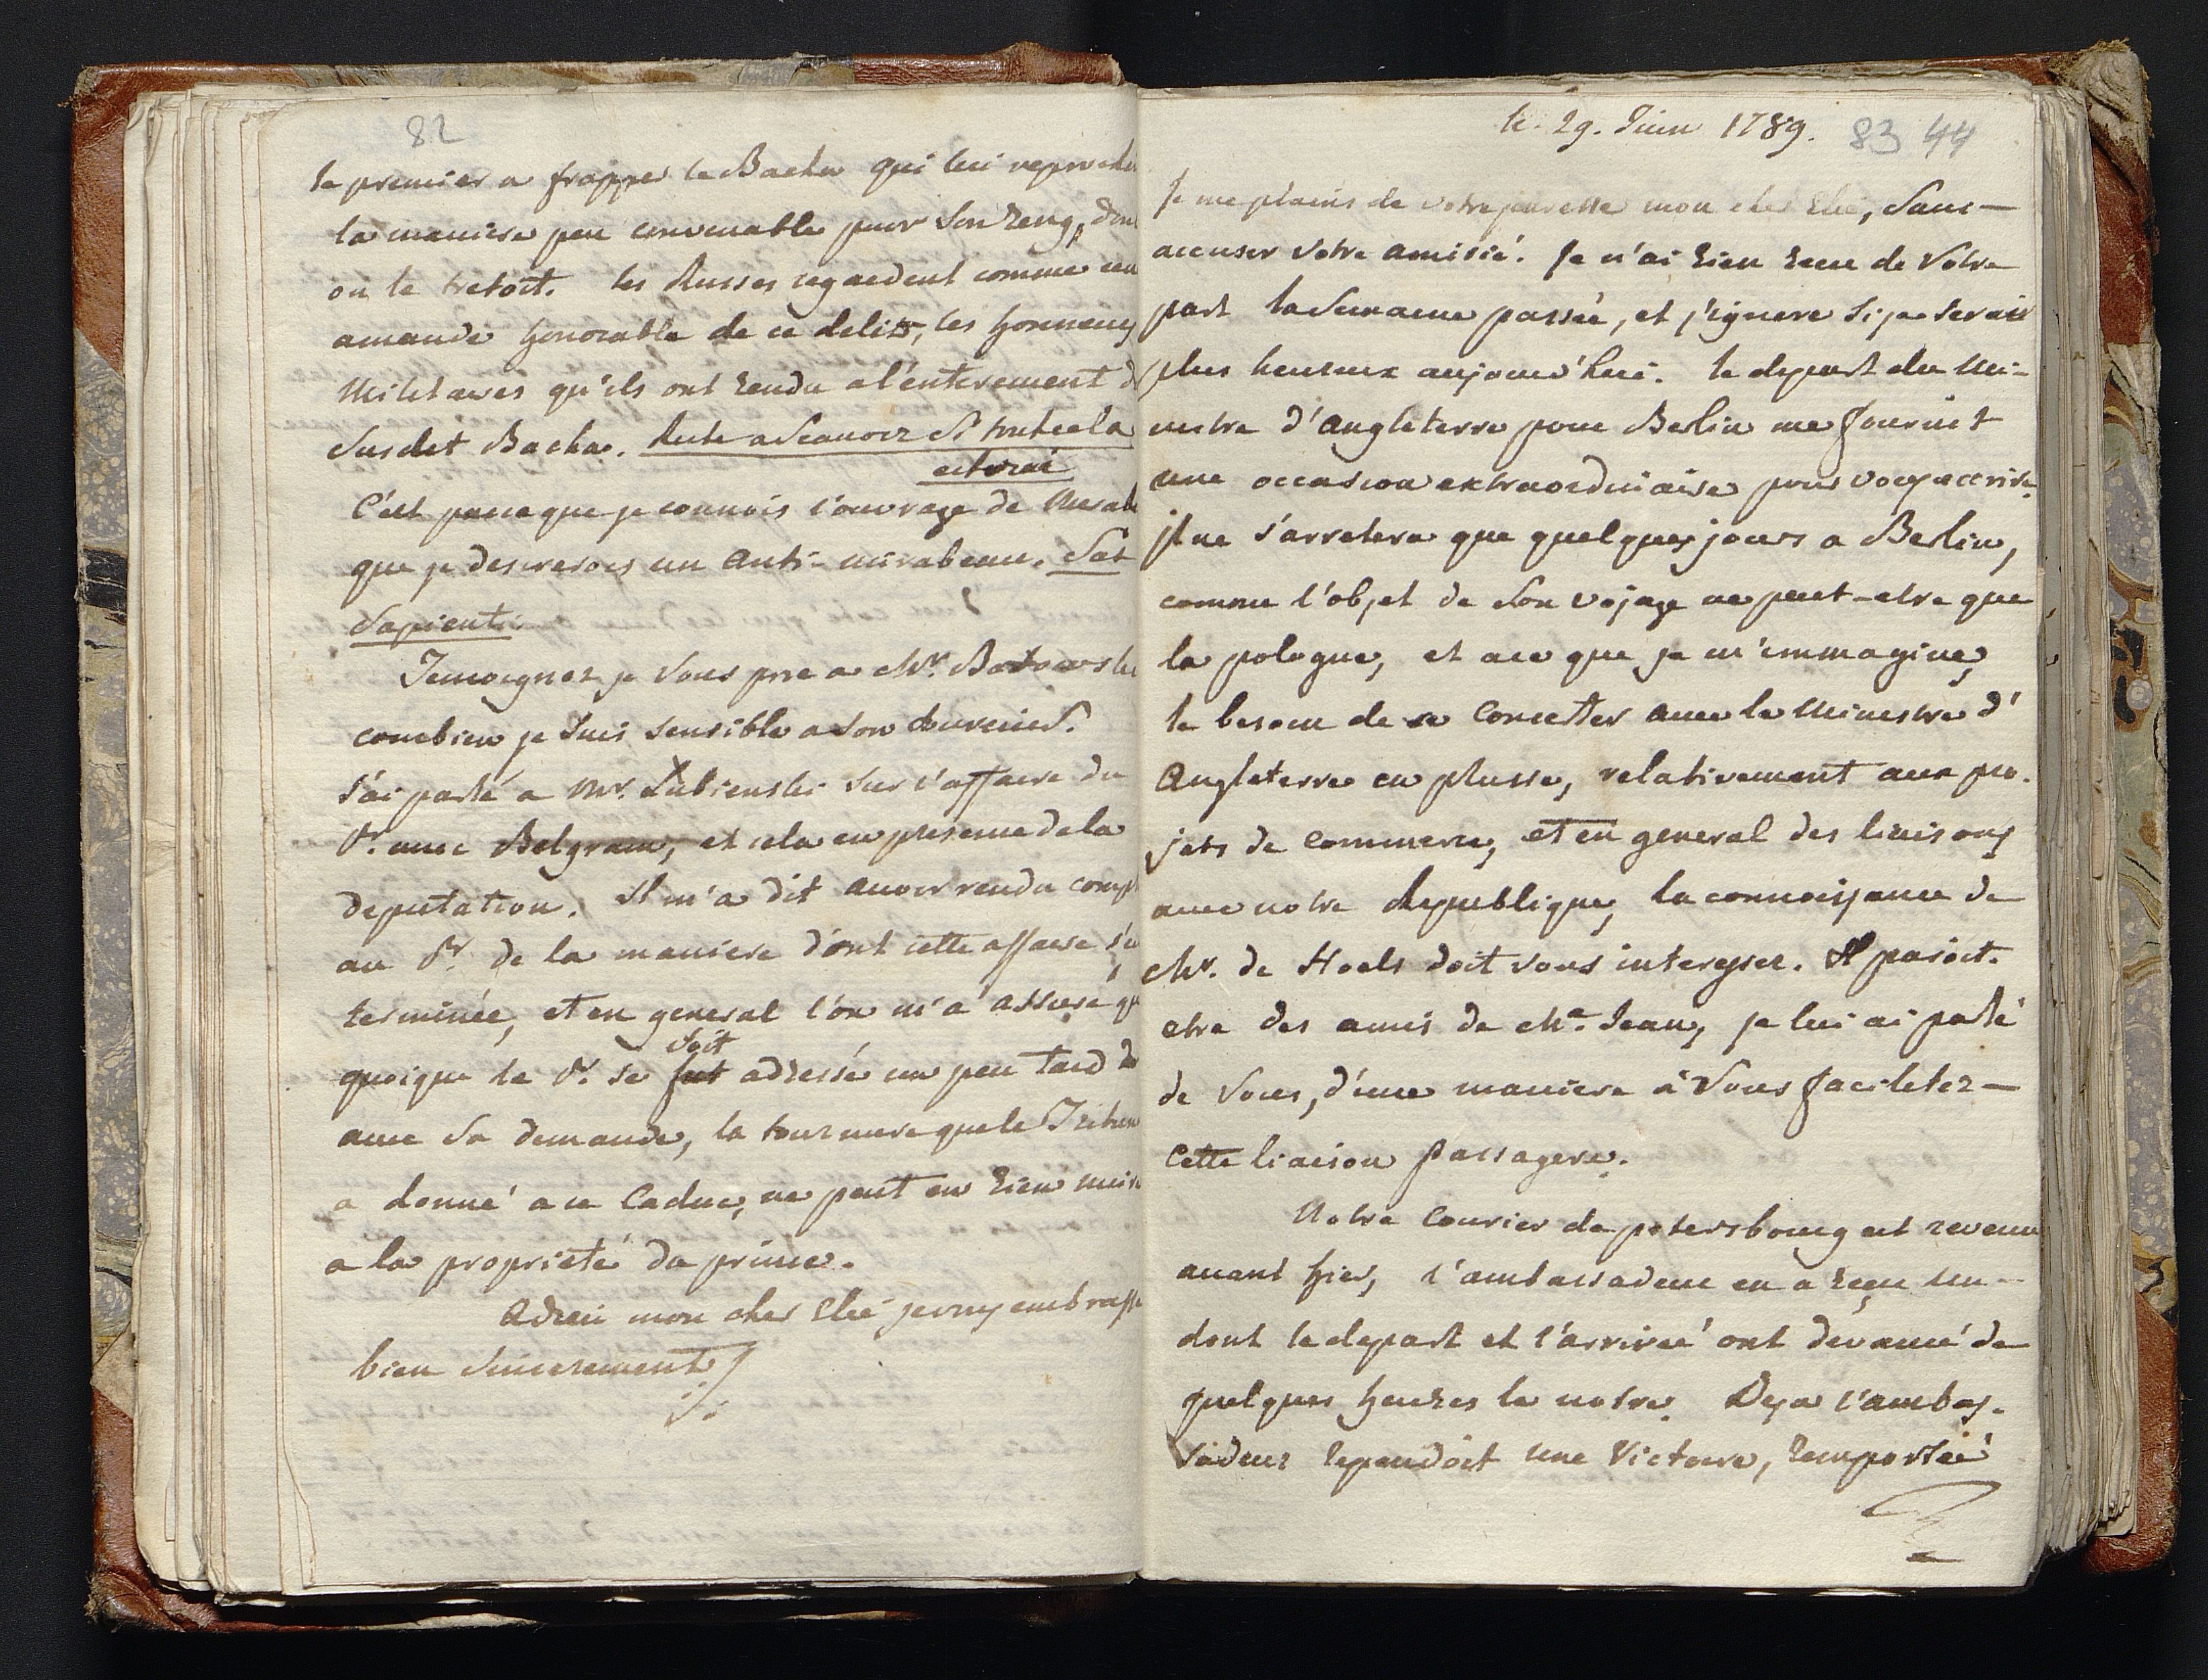 82
le premier a frapper le Bacha qui lui reprocha
la maniere peu convenable pour son reng, dont
on le tretoit. les Russes regardent comme une
amande honorable de ce delit, les honneurs
Militaires qu'ils ont rendu a l'enterement d
Susdit Bacha. Reste a Scavoir Si toute cela
est vrai
C'est parceque je connois l'ouvrage de
que je desirerois un anti-mirabeau. Sat
Sapienti
Temoignez je Vous prie a Mr.
combien je suis sensible a son Souvenir.
J'ai parlé a Mr. Lubienski sur l'affaire du
Pr. avec Belgram, et cela en presence de la
deputation. Il m'a dit avoir rendu compt
au Pr. de la maniere d'ont cette affaire s'e
terminée, et en general l'on m'a assuré qu
soit
quoique le Pr. se fut adressé un peu tard d
avec Sa demande, la tournure que le Tribun
a donné a ce Caduc, ne peut en rien nuire
a la proprieté du prince.
Adieu mon cher Elie je vous embrasse
bien Sincerement
le 29. Juin 1789.
83 44
Je me plains de votre paresse mon cher Elie, Sans
accuser Votre amitié. Je n'ai rien recu de Votre
part la Semaine passée, et j'ignore Si je Serais
plus heureux aujourd'hui. le depart du Mi-
nistre d'Angleterre pour Berlin me fournit
une occasion extraordinaire pour vous ecrire.
Il ne s'arretera que quelques jours a Berlin,
comme l'objet de Son voyage ne peut-etre que
la pologne, et a ce que je m'immagine,
le besoin de se Concerter avec le Ministre d'
Angleterre en Prusse, relativement aux pro-
jets de Commerce, et en general des liaisons
avec notre Republique, la connoissance de
Mr. de Hoels doit vous interesser. Il paroit
etre des amis de Me. Jean, je lui ai parlé
de Vous, d'une maniere a Vous faciliter
cette liaison passagere.
Notre Courier de petersbourg est revenu
avant hier, l'ambassadeur en a reçu un
dont le depart et l'arriveé ont devancé de
quelques heures le notre. Deja l'ambas-
sadeur rependoit une Victoire, remportée